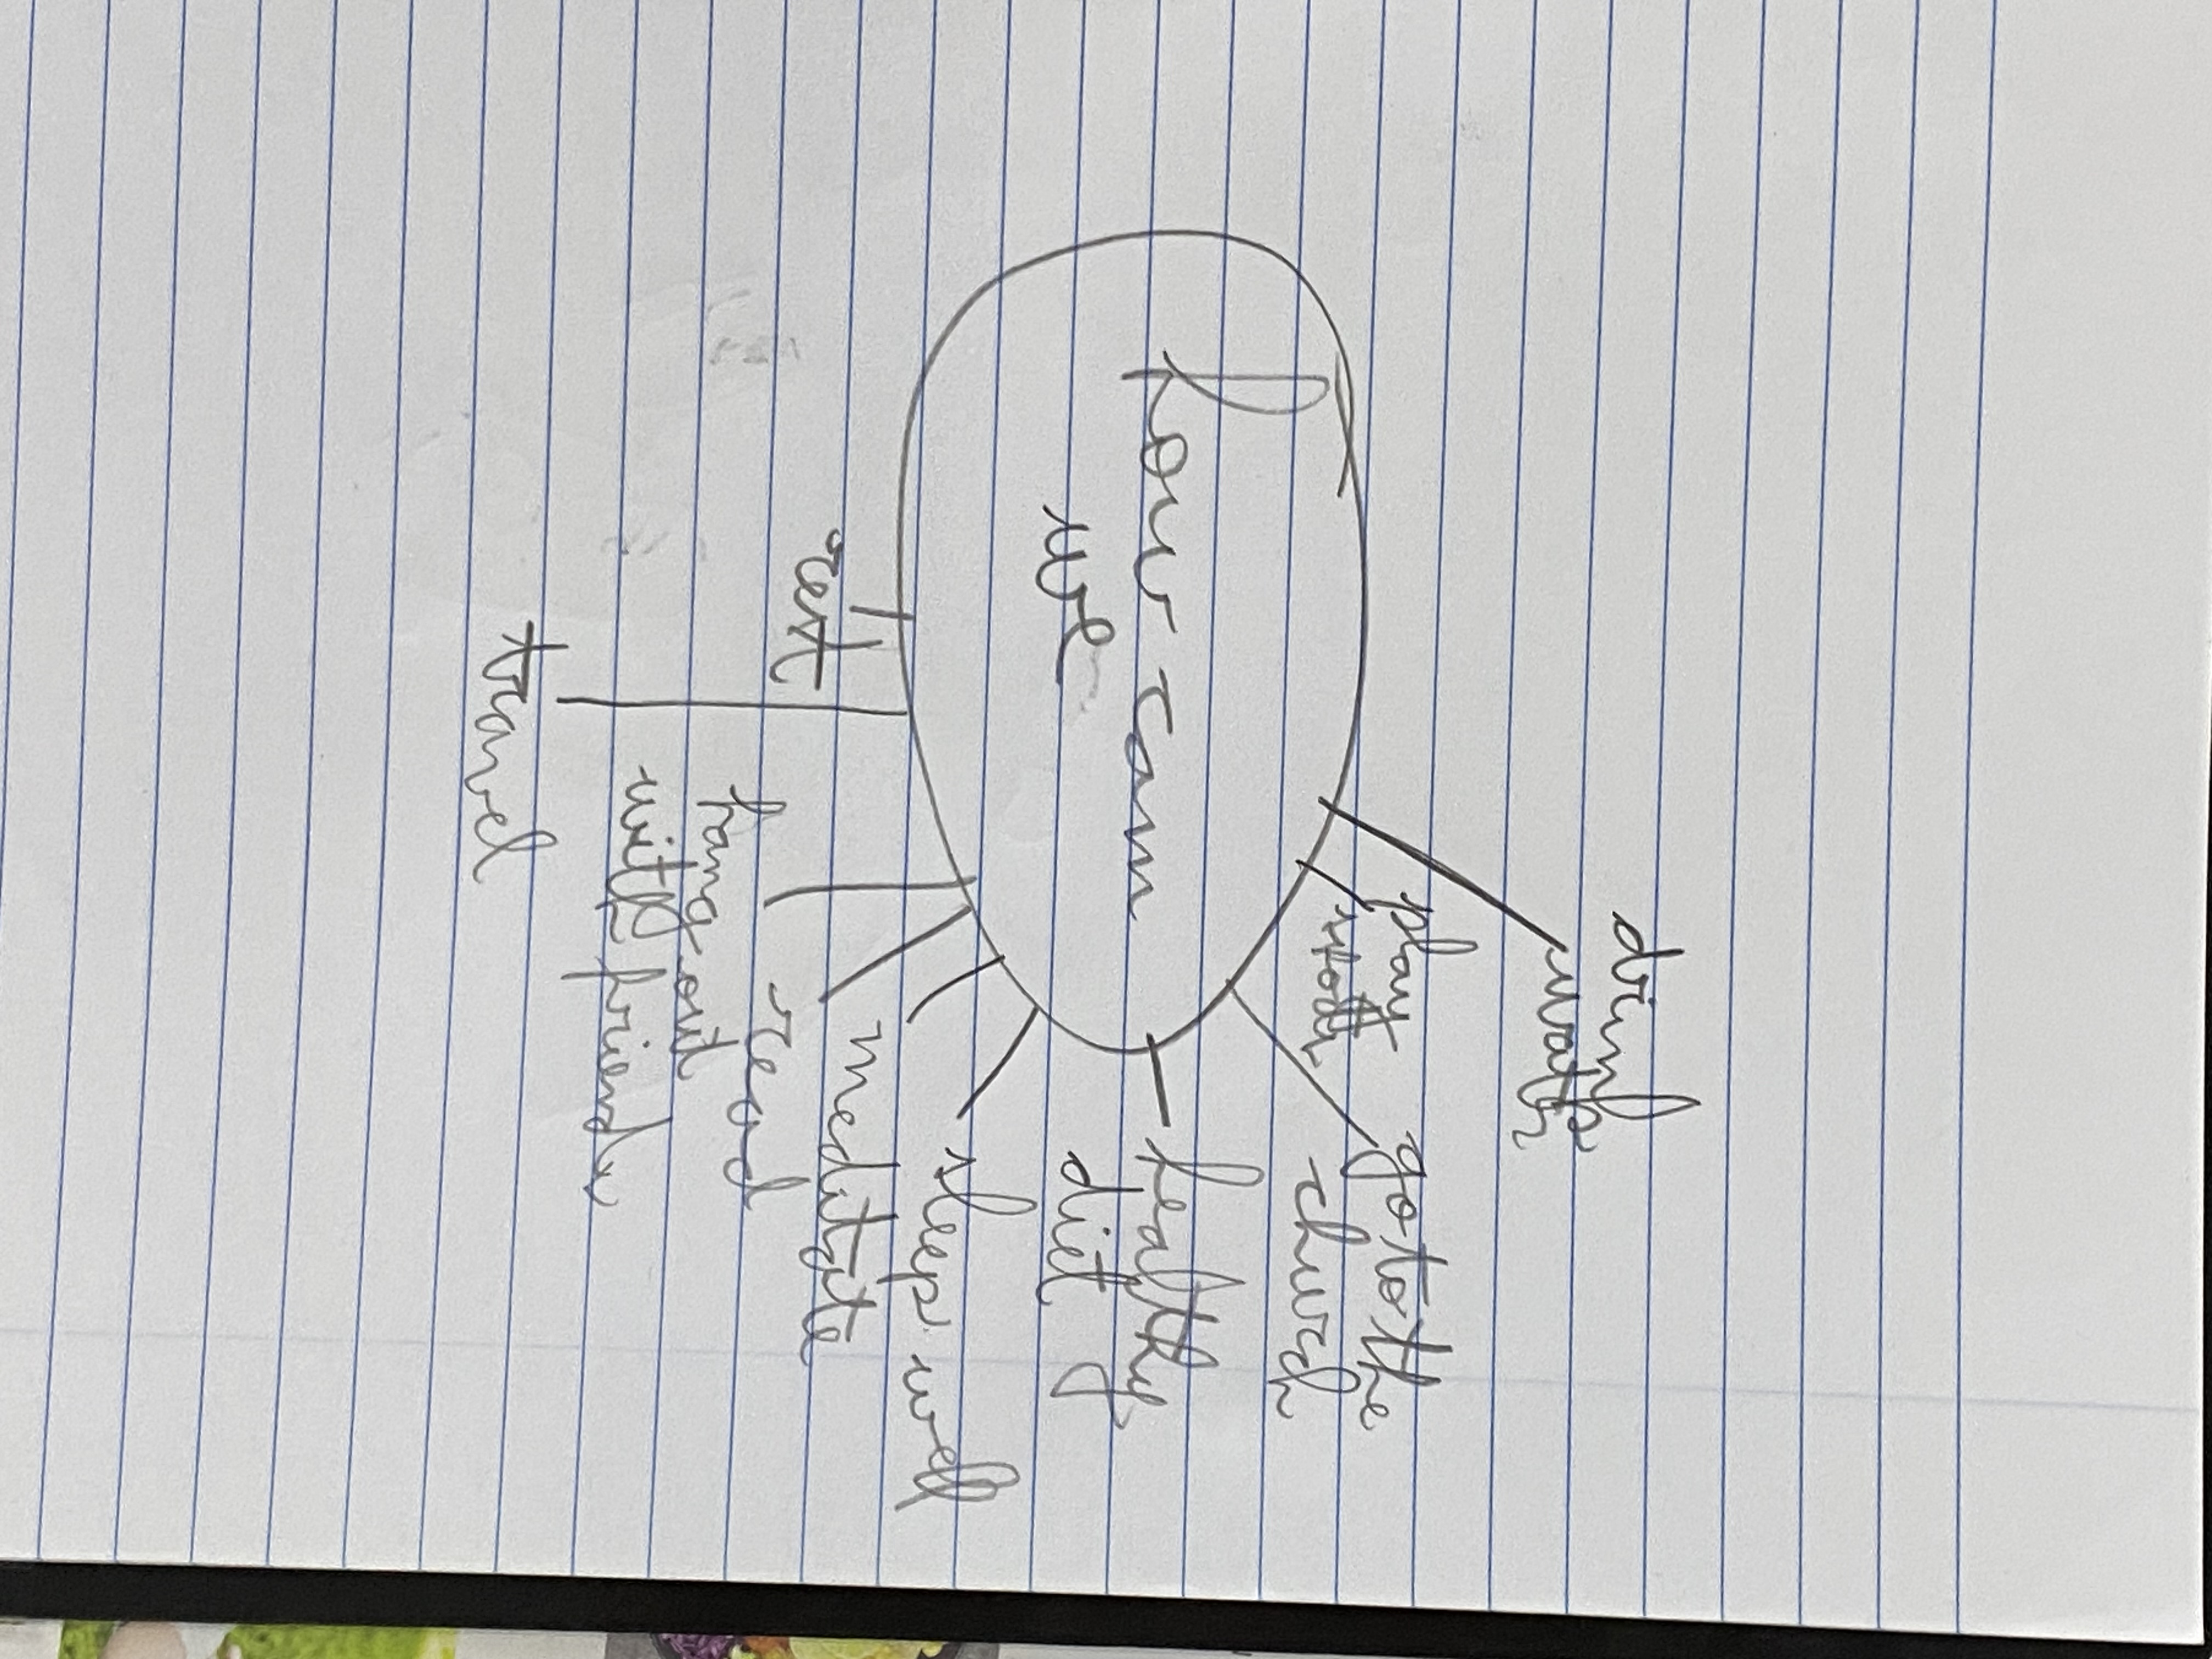 How can
we
drink
water
play
sport
go to the
church
healthy
diet
sleep well
meditate
read
hang out
with friends
travel
rest